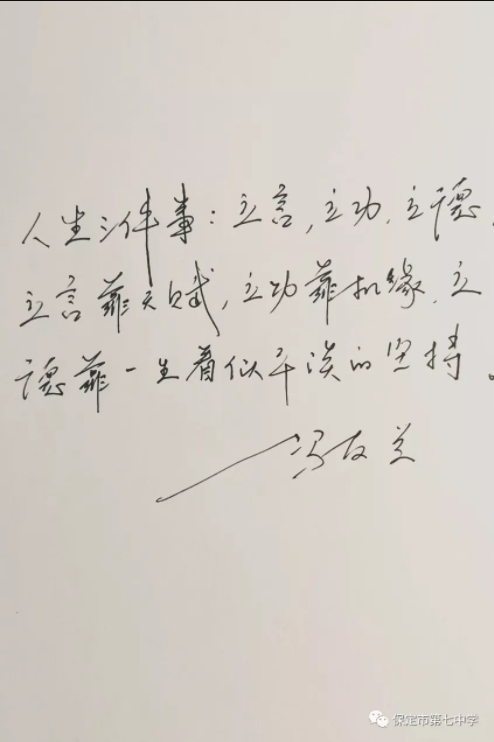 人生三件事：立言，立功，立德，
立言靠天赋，立功靠机缘，立
德靠一生看似平淡的坚持。
——冯友兰
保定市第七中学